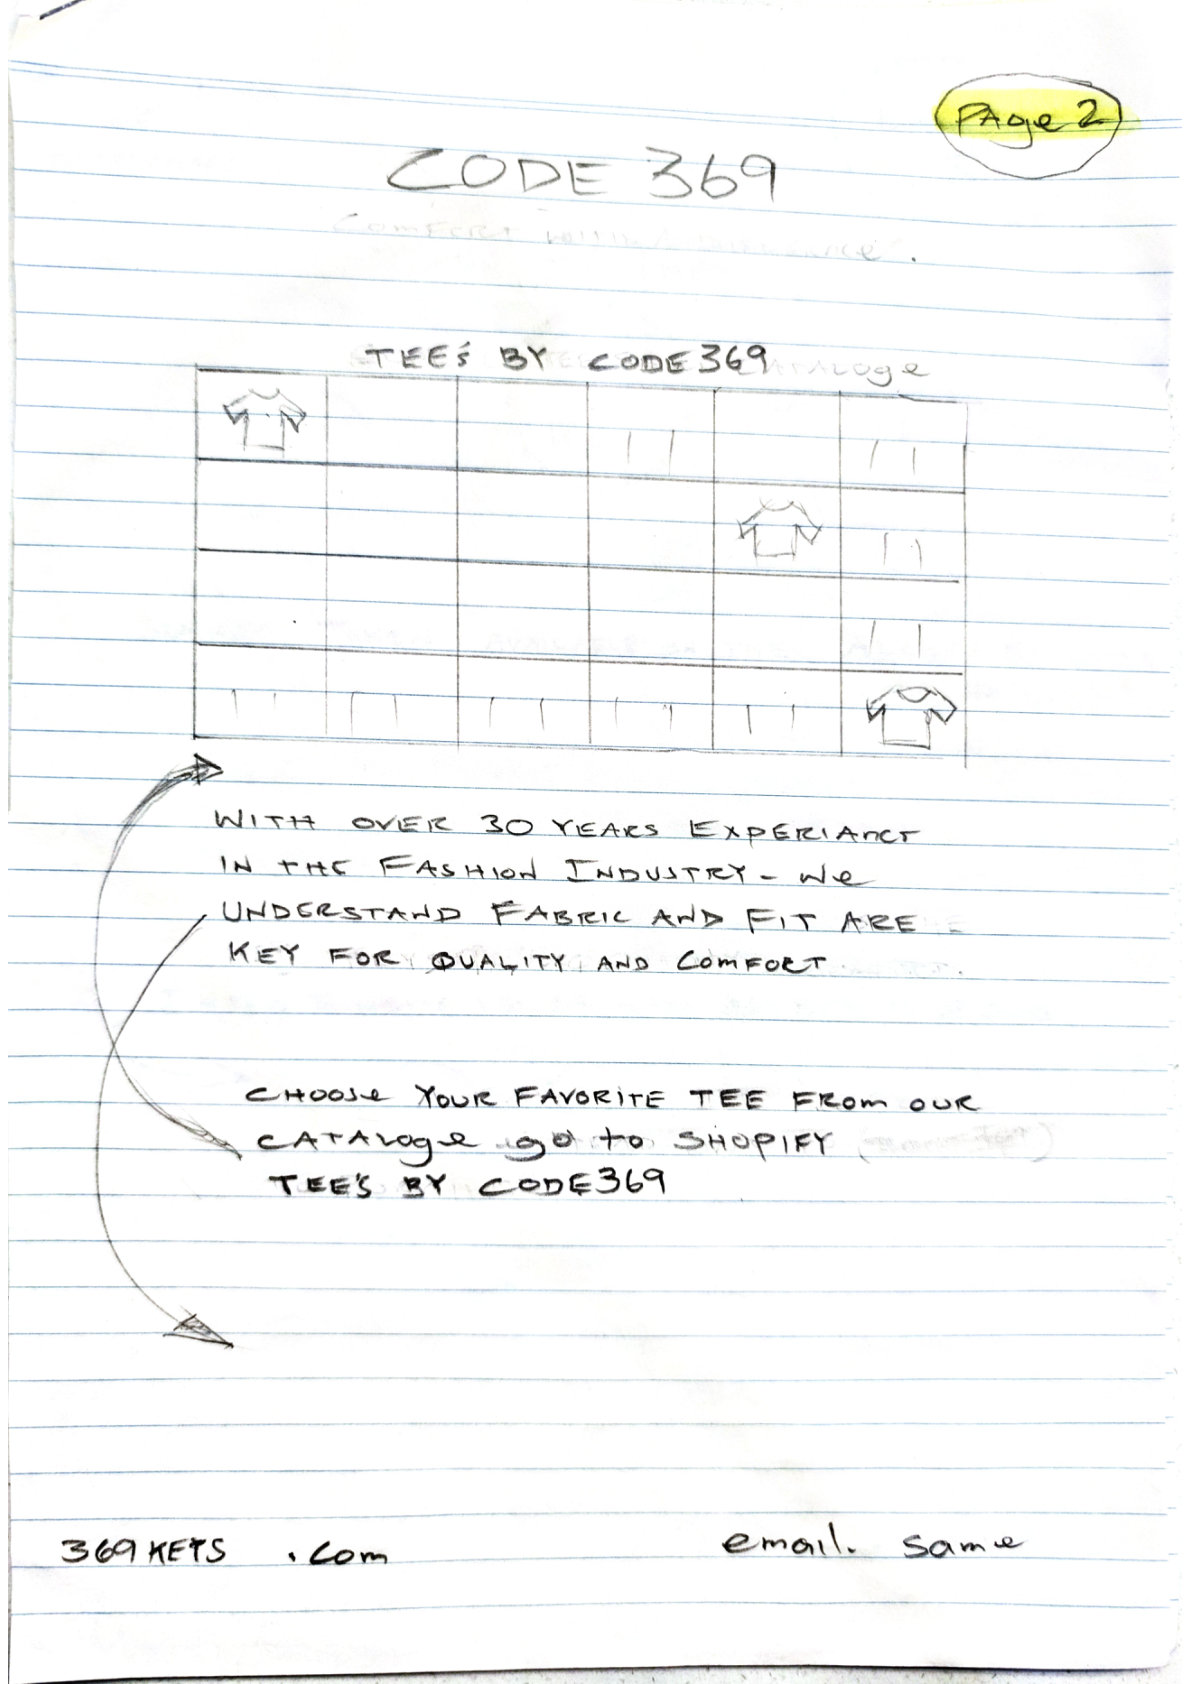 Page 2
CODE 369
COMFORT WITH A
TEE'S BY CODE369
WITH OVER 30 YEARS EXPERIANCE
IN THE FASHION INDUSTRY - We
UNDERSTAND FABRIC AND FIT ARE
KEY FOR QUALITY AND COMFORT
CHOOSE YOUR FAVORITE TEE FROM OUR
CATALOGE go to SHOPIFY
TEE'S BY CODE369
369 KEYS .com
email. same